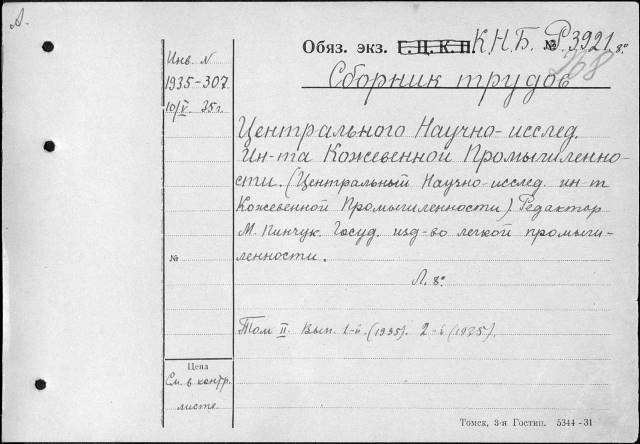 А.
Обяз. экз. Г.Ц.К.П. К.Н.Б. № Р.3921 8°
268
Инв. N
1935-307
10/V. 35г.
Сборник трудов
Центрального Научно-исслед.
Ин-та Кожевенной Промышленно-
сти. (Центральный Научно-исслед. ин-т
Кожевенной Промышленности) Редактор
М. Пинчук. Госуд. изд-во легкой промыш-
ленности.
№
Л. 8°
Том II. Вып. 1-й (1935). 2-й (1935).
Цена
См. в контр.
листе
Томск, 3-я Гостип. 5344-31